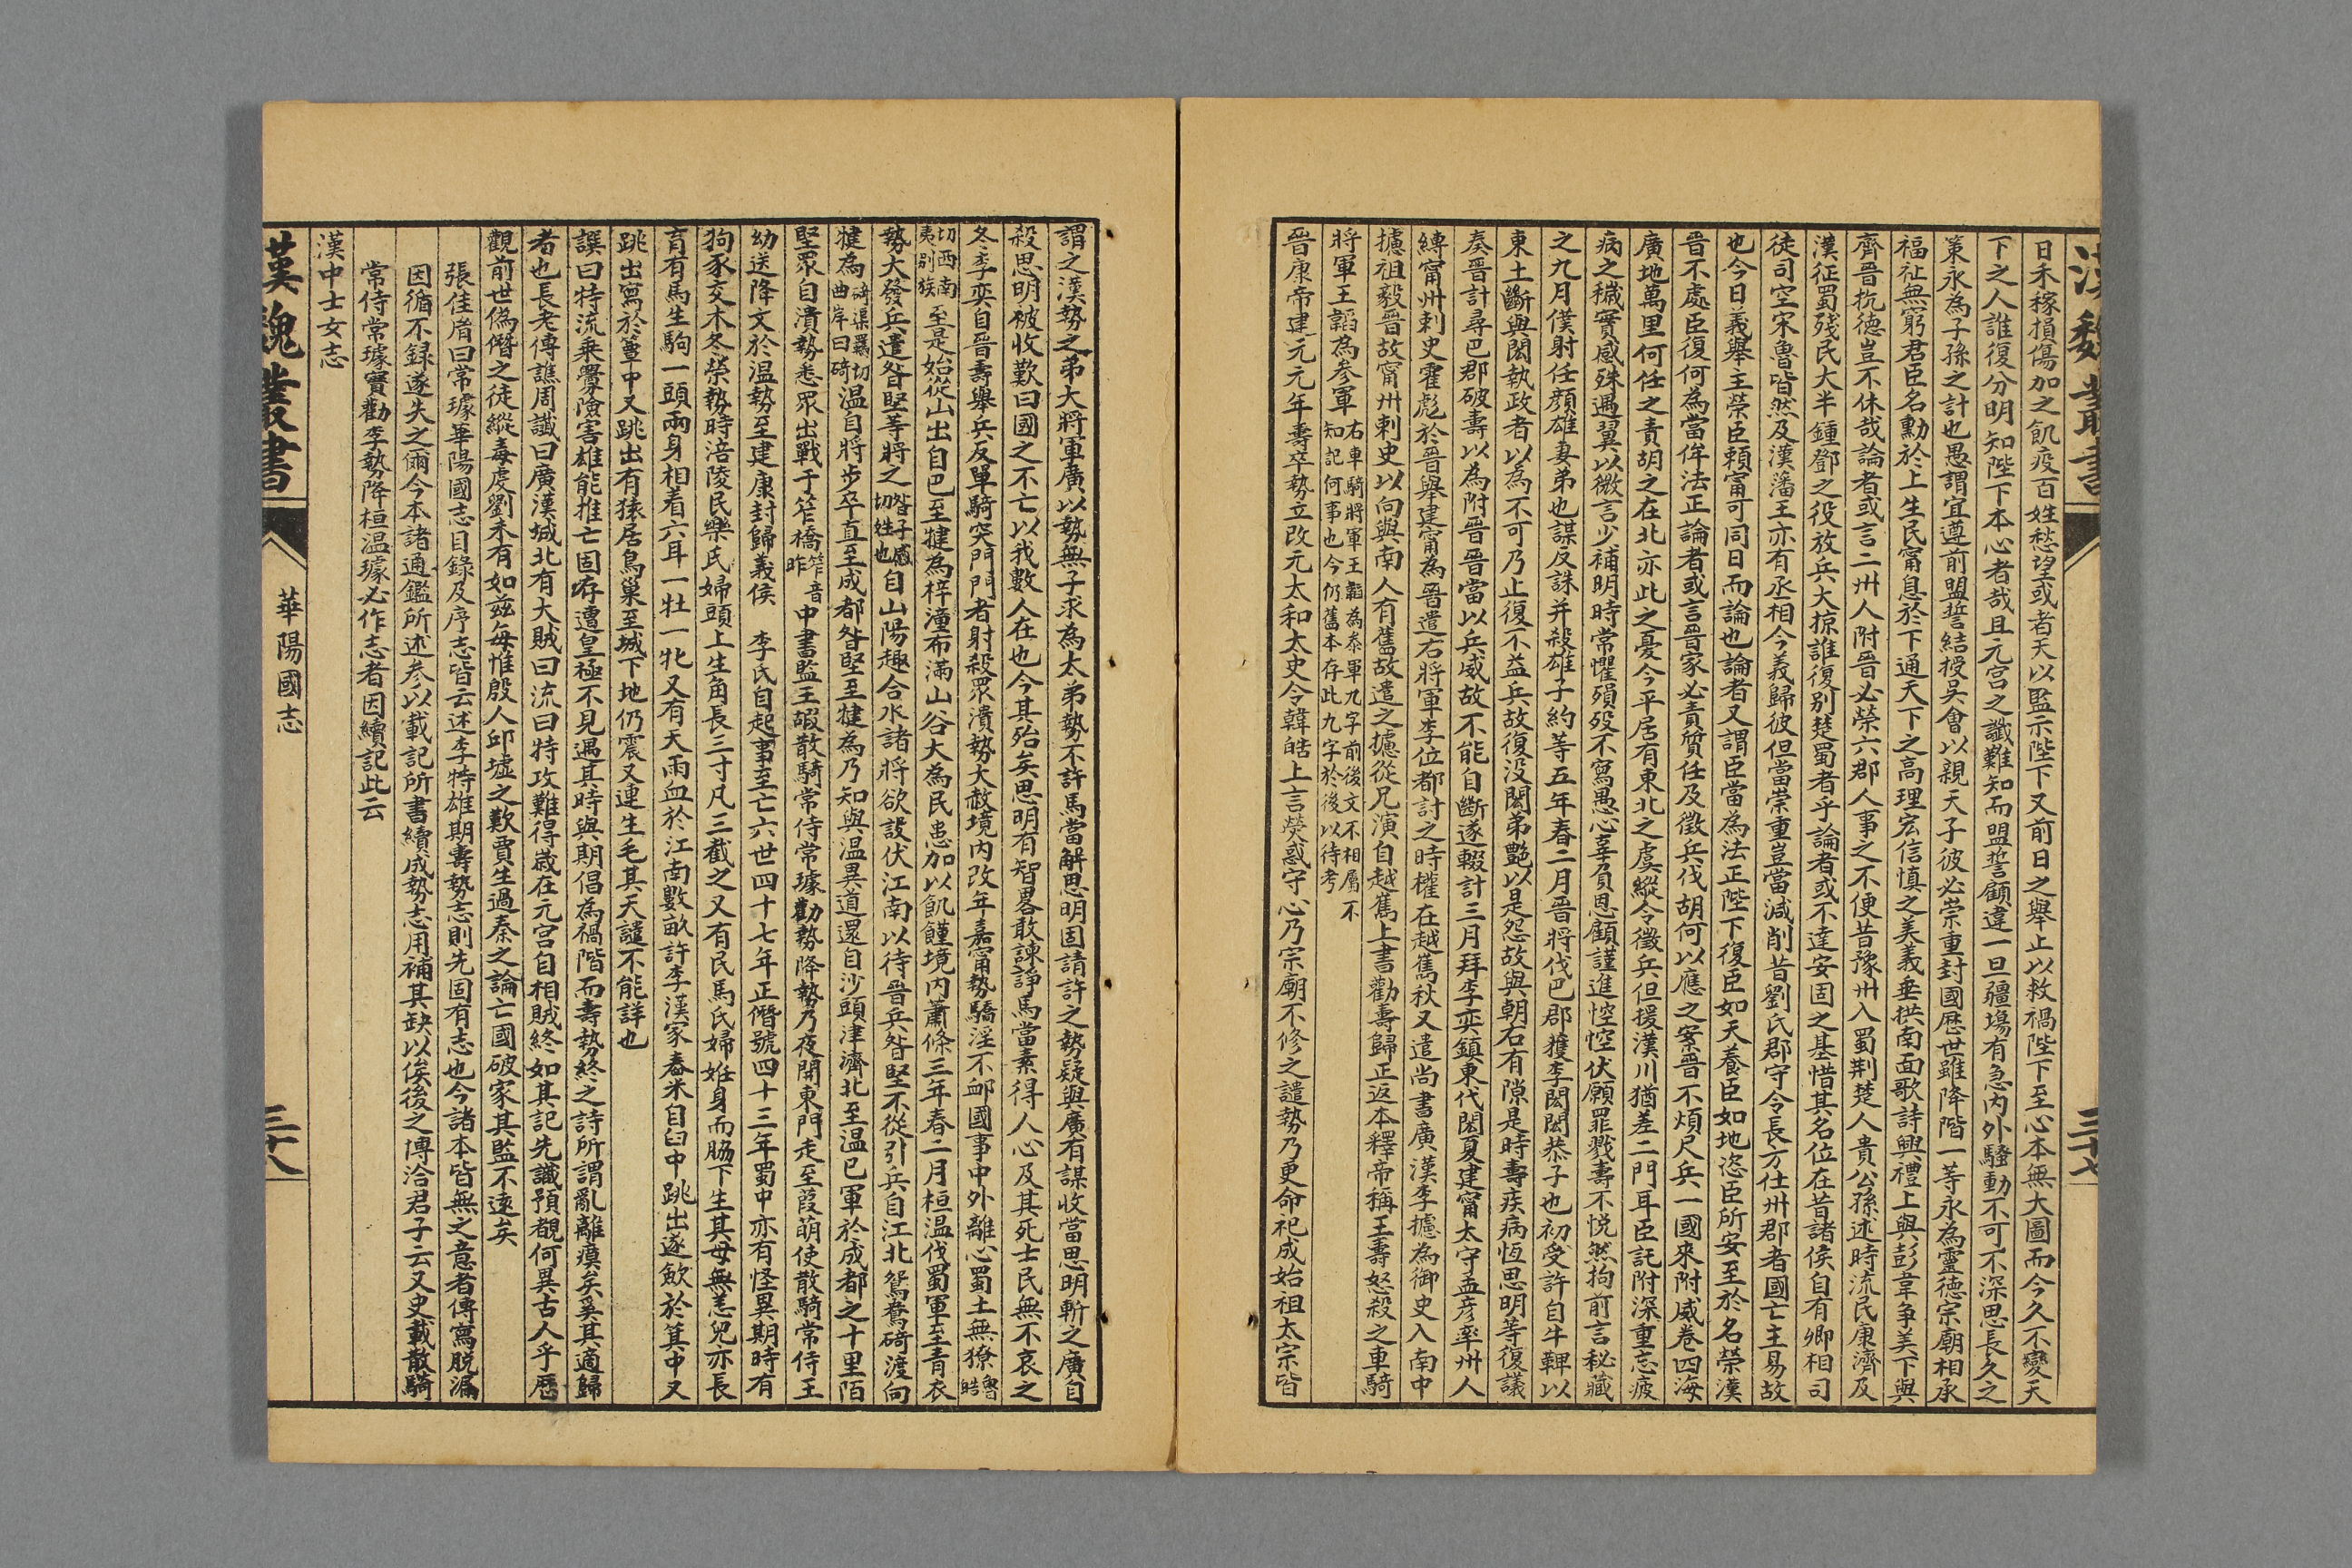 漢魏叢書
三十七
日禾稼損傷加之飢疫百姓愁望或者天以監示陛下又前日之舉止以救禍陛下至心本無大圖而今久不變天
下之人誰復分明知陛下本心者哉且元宮之讖難知而盟誓顧違一旦疆場有急內外騷動不可不深思長久之
策永為子孫之計也愚謂宜遵前盟誓結援吳會以親天子彼必崇重封國歷世雖降階一等永為靈德宗廟相承
福祉無窮君臣名勳於上生民甯息於下通天下之高理宏信慎之美義垂拱南面歌詩興禮上與彭韋爭美下與
齊晉抗德豈不休哉論者或言二州人附晉必榮六郡人事之不便昔豫州入蜀荆楚人貴公孫述時流民康濟及
漢征蜀殘民大半鍾鄧之役放兵大掠誰復別楚蜀者乎論者或不達安固之基惜其名位在昔諸侯自有卿相司
徒司空宋魯皆然及漢藩王亦有丞相今義歸彼但當崇重豈當減削昔劉氏郡守令長方仕州郡者國亡主易故
也今日義舉主榮臣頼甯可同日而論也論者又謂臣當為法正陛下復臣如天養臣如地恣臣所安至於名榮漢
晉不處臣復何為當侔法正論者或言晉家必責質任及徵兵伐胡何以應之案晉不煩尺兵一國來附威卷四海
廣地萬里何任之責胡之在北亦此之憂今平居有東北之虞縱令徵兵但援漢川猶差二門耳臣託附深重忘疲
病之穢實感殊遇冀以微言少補明時常懼殞歿不寫愚心辜負恩顧謹進悾悾伏願罪戮壽不悦然拘前言秘藏
之九月僕射任顏雄妻弟也謀反誅并殺雄子約等五年春二月晉將伐巴郡獲李閎閎恭子也初受許自牛鞞以
東土斷與閎執政者以為不可乃止復不益兵故復没閎弟艷以是怨故與朝右有隙是時壽疾病恆思明等復議
奏晉計尋巴郡破壽以為附晉晉當以兵威故不能自斷遂輟計三月拜李奕鎮東代閎夏建甯太守孟彥率州人
縛甯州刺史霍彪於晉舉建甯為晉遣右將軍李位都討之時權在越嶲秋又遣尚書廣漢李攄為御史入南中
攄祖毅晉故甯州刺史以向與南人有舊故遣之攄從兄演自越嶲上書勸壽歸正返本釋帝稱王壽怒殺之車騎
將軍王韜為參軍右車騎將軍王韜為參軍九字前後文不相屬不知記何事也今仍舊本存此九字於後以待考
晉康帝建元元年壽卒勢立改元太和太史令韓皓上言熒惑守心乃宗廟不修之譴勢乃更命祀成始祖太宗皆
謂之漢勢之弟大將軍廣以勢無子求為太弟勢不許馬當解思明固請許之勢疑與廣有謀收當思明斬之廣自
殺思明被收歎曰國之不亡以我數人在也今其殆矣思明有智畧敢諫諍馬當素得人心及其死士民無不哀之
冬李奕自晉壽舉兵反單騎突門門者射殺眾潰勢大赦境內改年嘉甯勢驕淫不䘏國事中外離心蜀土無獠魯皓
切西南夷別族至是始從山出自巴至犍為梓潼布滿山谷大為民患加以飢饉境內蕭條三年春二月桓温伐蜀軍至青衣
勢大發兵遣昝堅等將之昝子感切姓也自山陽趣合水諸將欲設伏江南以待晉兵昝堅不從引兵自江北鴛鴦碕渡向
犍為碕渠羈切曲岸曰碕温自將步卒直至成都昝堅至犍為乃知與温異道還自沙頭津濟北至温已軍於成都之十里陌
堅眾自潰勢悉眾出戰于笮橋笮音昨中書監王嘏散騎常侍常璩勸勢降勢乃夜開東門走至葭萌使散騎常侍王
幼送降文於温勢至建康封歸義侯　李氏自起事至亡六世四十七年正僭號四十三年蜀中亦有怪異期時有
狗豕交木冬榮勢時涪陵民樂氏婦頭上生角長三寸凡三截之又有民馬氏婦姙身而脇下生其母無恙兒亦長
育有馬生駒一頭兩身相着六耳一牡一牝又有天雨血於江南數畝許李漢家舂米自臼中跳出遂斂於箕中又
跳出寫於簟中又跳出有猿居鳥巢至城下地仍震又連生毛其天譴不能詳也
譔曰特流乘釁險害雄能推亡固存遭皇極不見遇其時與期倡為禍階而壽勢終之詩所謂亂離瘼矣奚其適歸
者也長老傳譙周讖曰廣漢城北有大賊曰流曰特攻難得歲在元宮自相賊終如其記先識預覩何異古人乎歷
觀前世偽僭之徒縱毒虔劉未有如茲每惟殷人邱墟之歎賈生過秦之論亡國破家其監不遠矣
張佳胤曰常璩華陽國志目錄及序志皆云述李特雄期壽勢志則先固有志也今諸本皆無之意者傳寫脱漏
因循不録遂失之爾今本諸通鑑所述參以載記所書續成勢志用補其缺以俟後之博洽君子云又史載散騎
常侍常璩實勸李勢降桓温璩必作志者因續記此云
漢中士女志
漢魏叢書
華陽國志
三十八